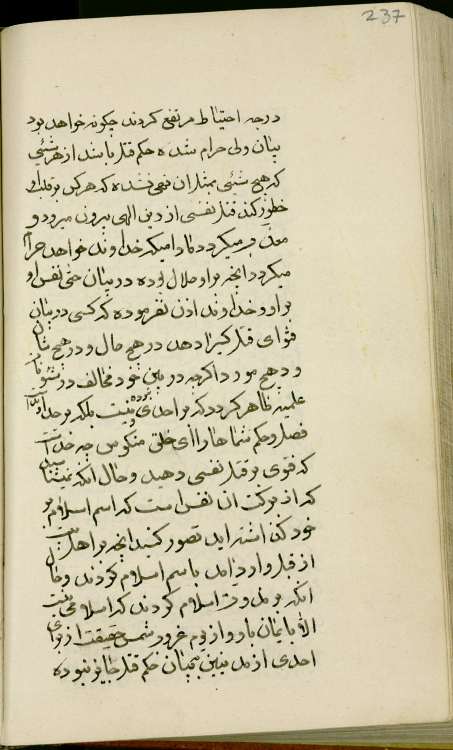 237
درجه احتیاط مرتفع کردند چگونه خواهد بود
بیان ولی حرام شده حکم قتل باشد از هر شیئ
که هیچ شیئی بمثل ان نهی نشده که هر کس بر قلب
خطور کند قتل نفسی از دین الهی بیرون میرود و
معذب میگردد مادامیکه خداوند خواهد حرام
میگردد انچه بر او حلال بوده در بیان حتی نفس او
بر او و خداوند اذن نفرموده که کسی در بیان
فتوای قتل کسی را دهد در هیچ حال و در هیچ شأن
و در هیچ مورد اگر چه در بین خود مخالف در شئونات
علمیه ظاهر گردد که بر احدی نیست بلکه بر خداوند
فصل و حکم شما ها را ای خلق منکوس چه حد است
که فتوی بر قتل نفسی دهید و حال انکه
که از برکت ان نفس است که اسم اسلام بر
خود گذاشته اید تصور کنید انچه بر اهل بیت
از قبل وارد امد باسم اسلام کردند و حال
انکه بر ملوث اسلام کردند که اسلام نیست
الا بایمان باو و از یوم غروب شمس حقیقت از برای
احدی از مدینین ببیان حکم قتل جایز نبوده